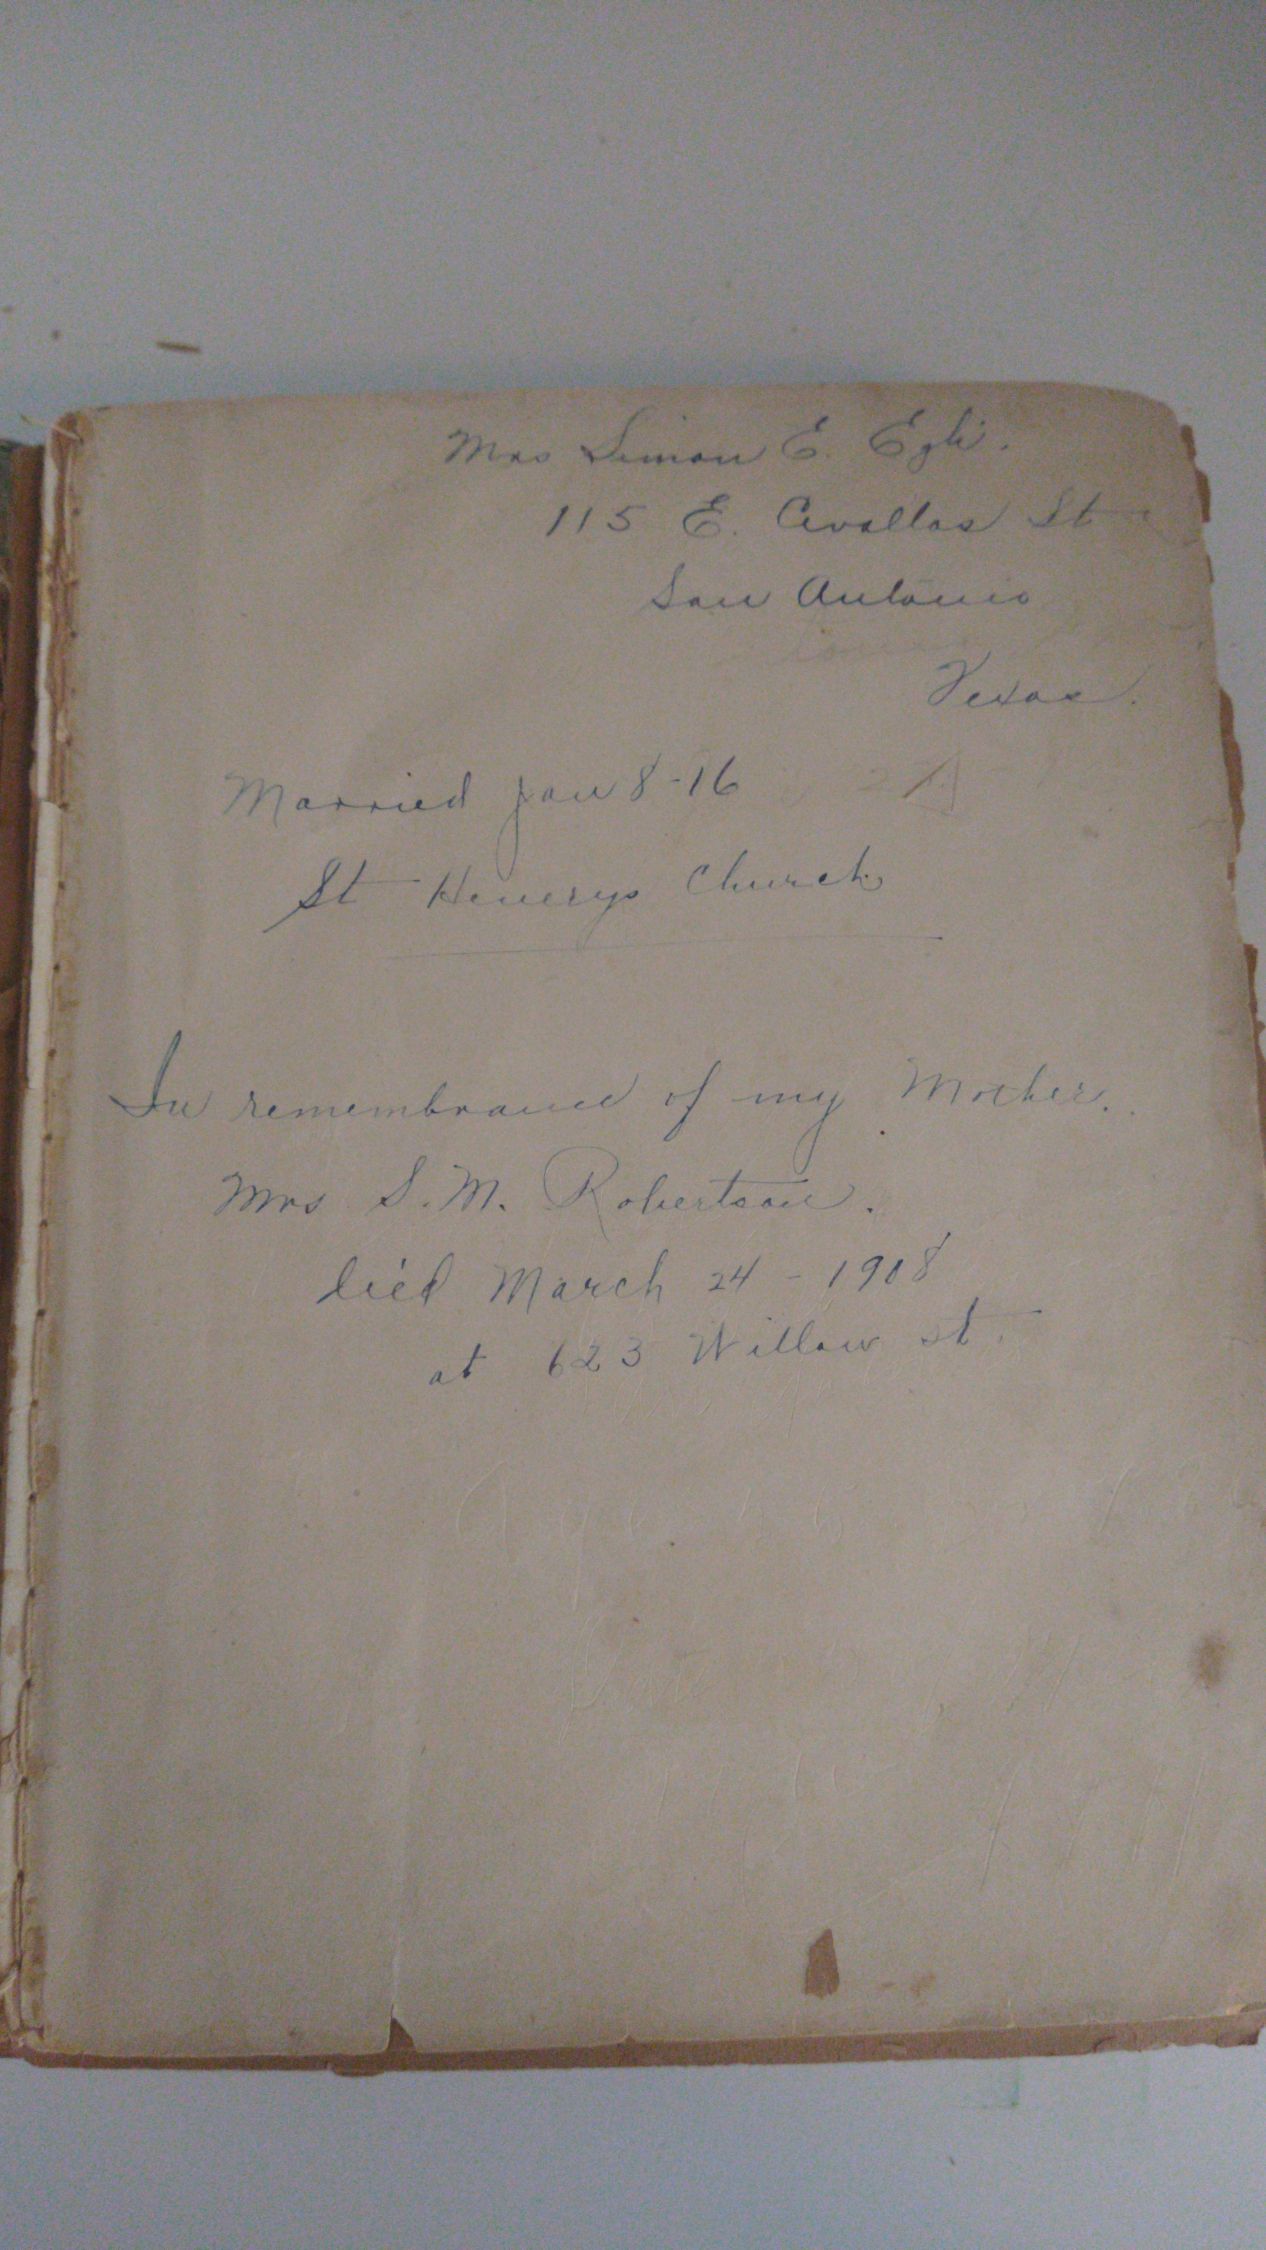 Mrs Simon E. Egli.
115 E. Cevallas St
San Antonio
Texas.
Married Jan 8-16
St Henerys Church
In remembrance of my Mother.
Mrs S. M. Robertson.
died March 24 - 1908
at 623 Willow st.